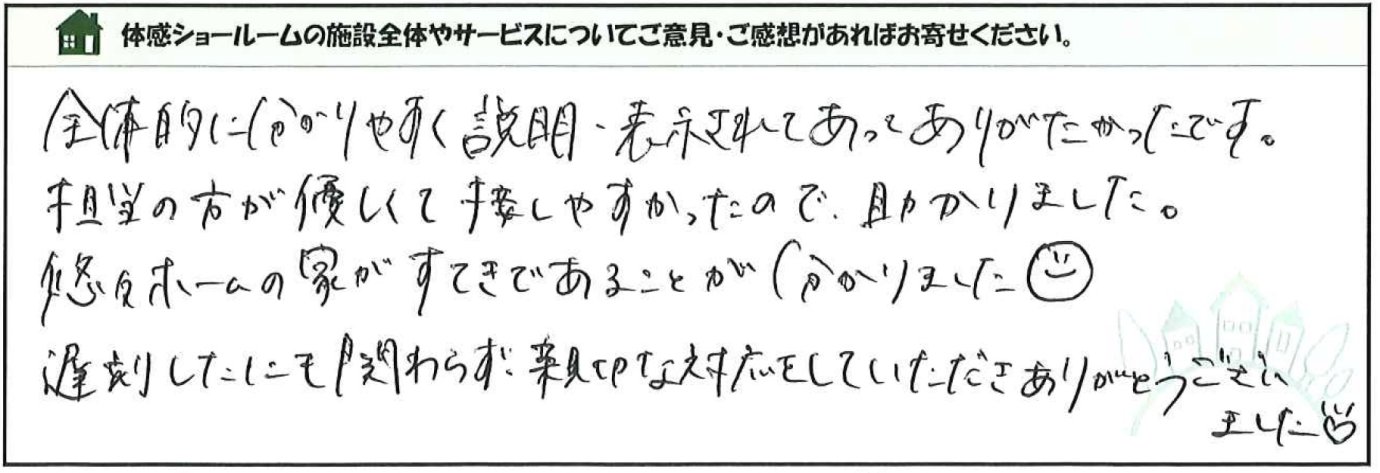 体感ショールームの施設全体やサービスについてご意見・ご感想があればお寄せください。
全体的に分かりやすく説明・表示されてあってありがたかったです。
担当の方が優しくて接しやすかったので、助かりました。
悠悠ホームの家がすてきであることが分かりました
遅刻したにも関わらず、親切な対応をしていただきありがとうござい
ました